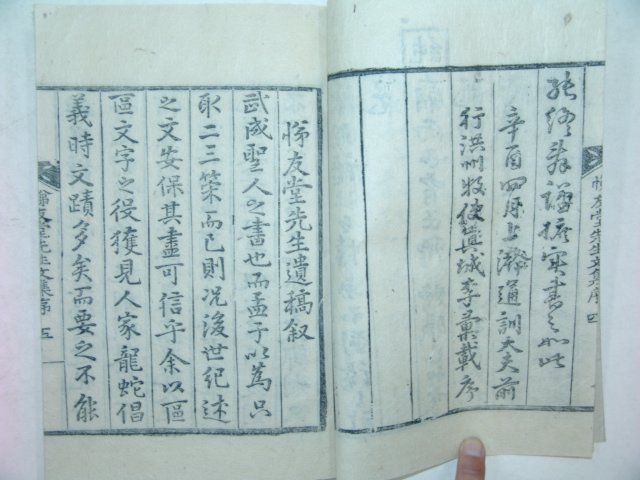 謹據實書之如此
辛酉四月上澣通訓大夫前
行洪州牧使眞城李彙載序
悌友堂先生文集序 四
悌友堂先生遺稿叙
武成聖人之書也而孟子以爲只
取二三策而已則况後世紀述
之文安保其盡可信乎余以區
區文字之役獲見人家龍蛇倡
義時文蹟多矣而要之不能
悌友堂先生文集序 五